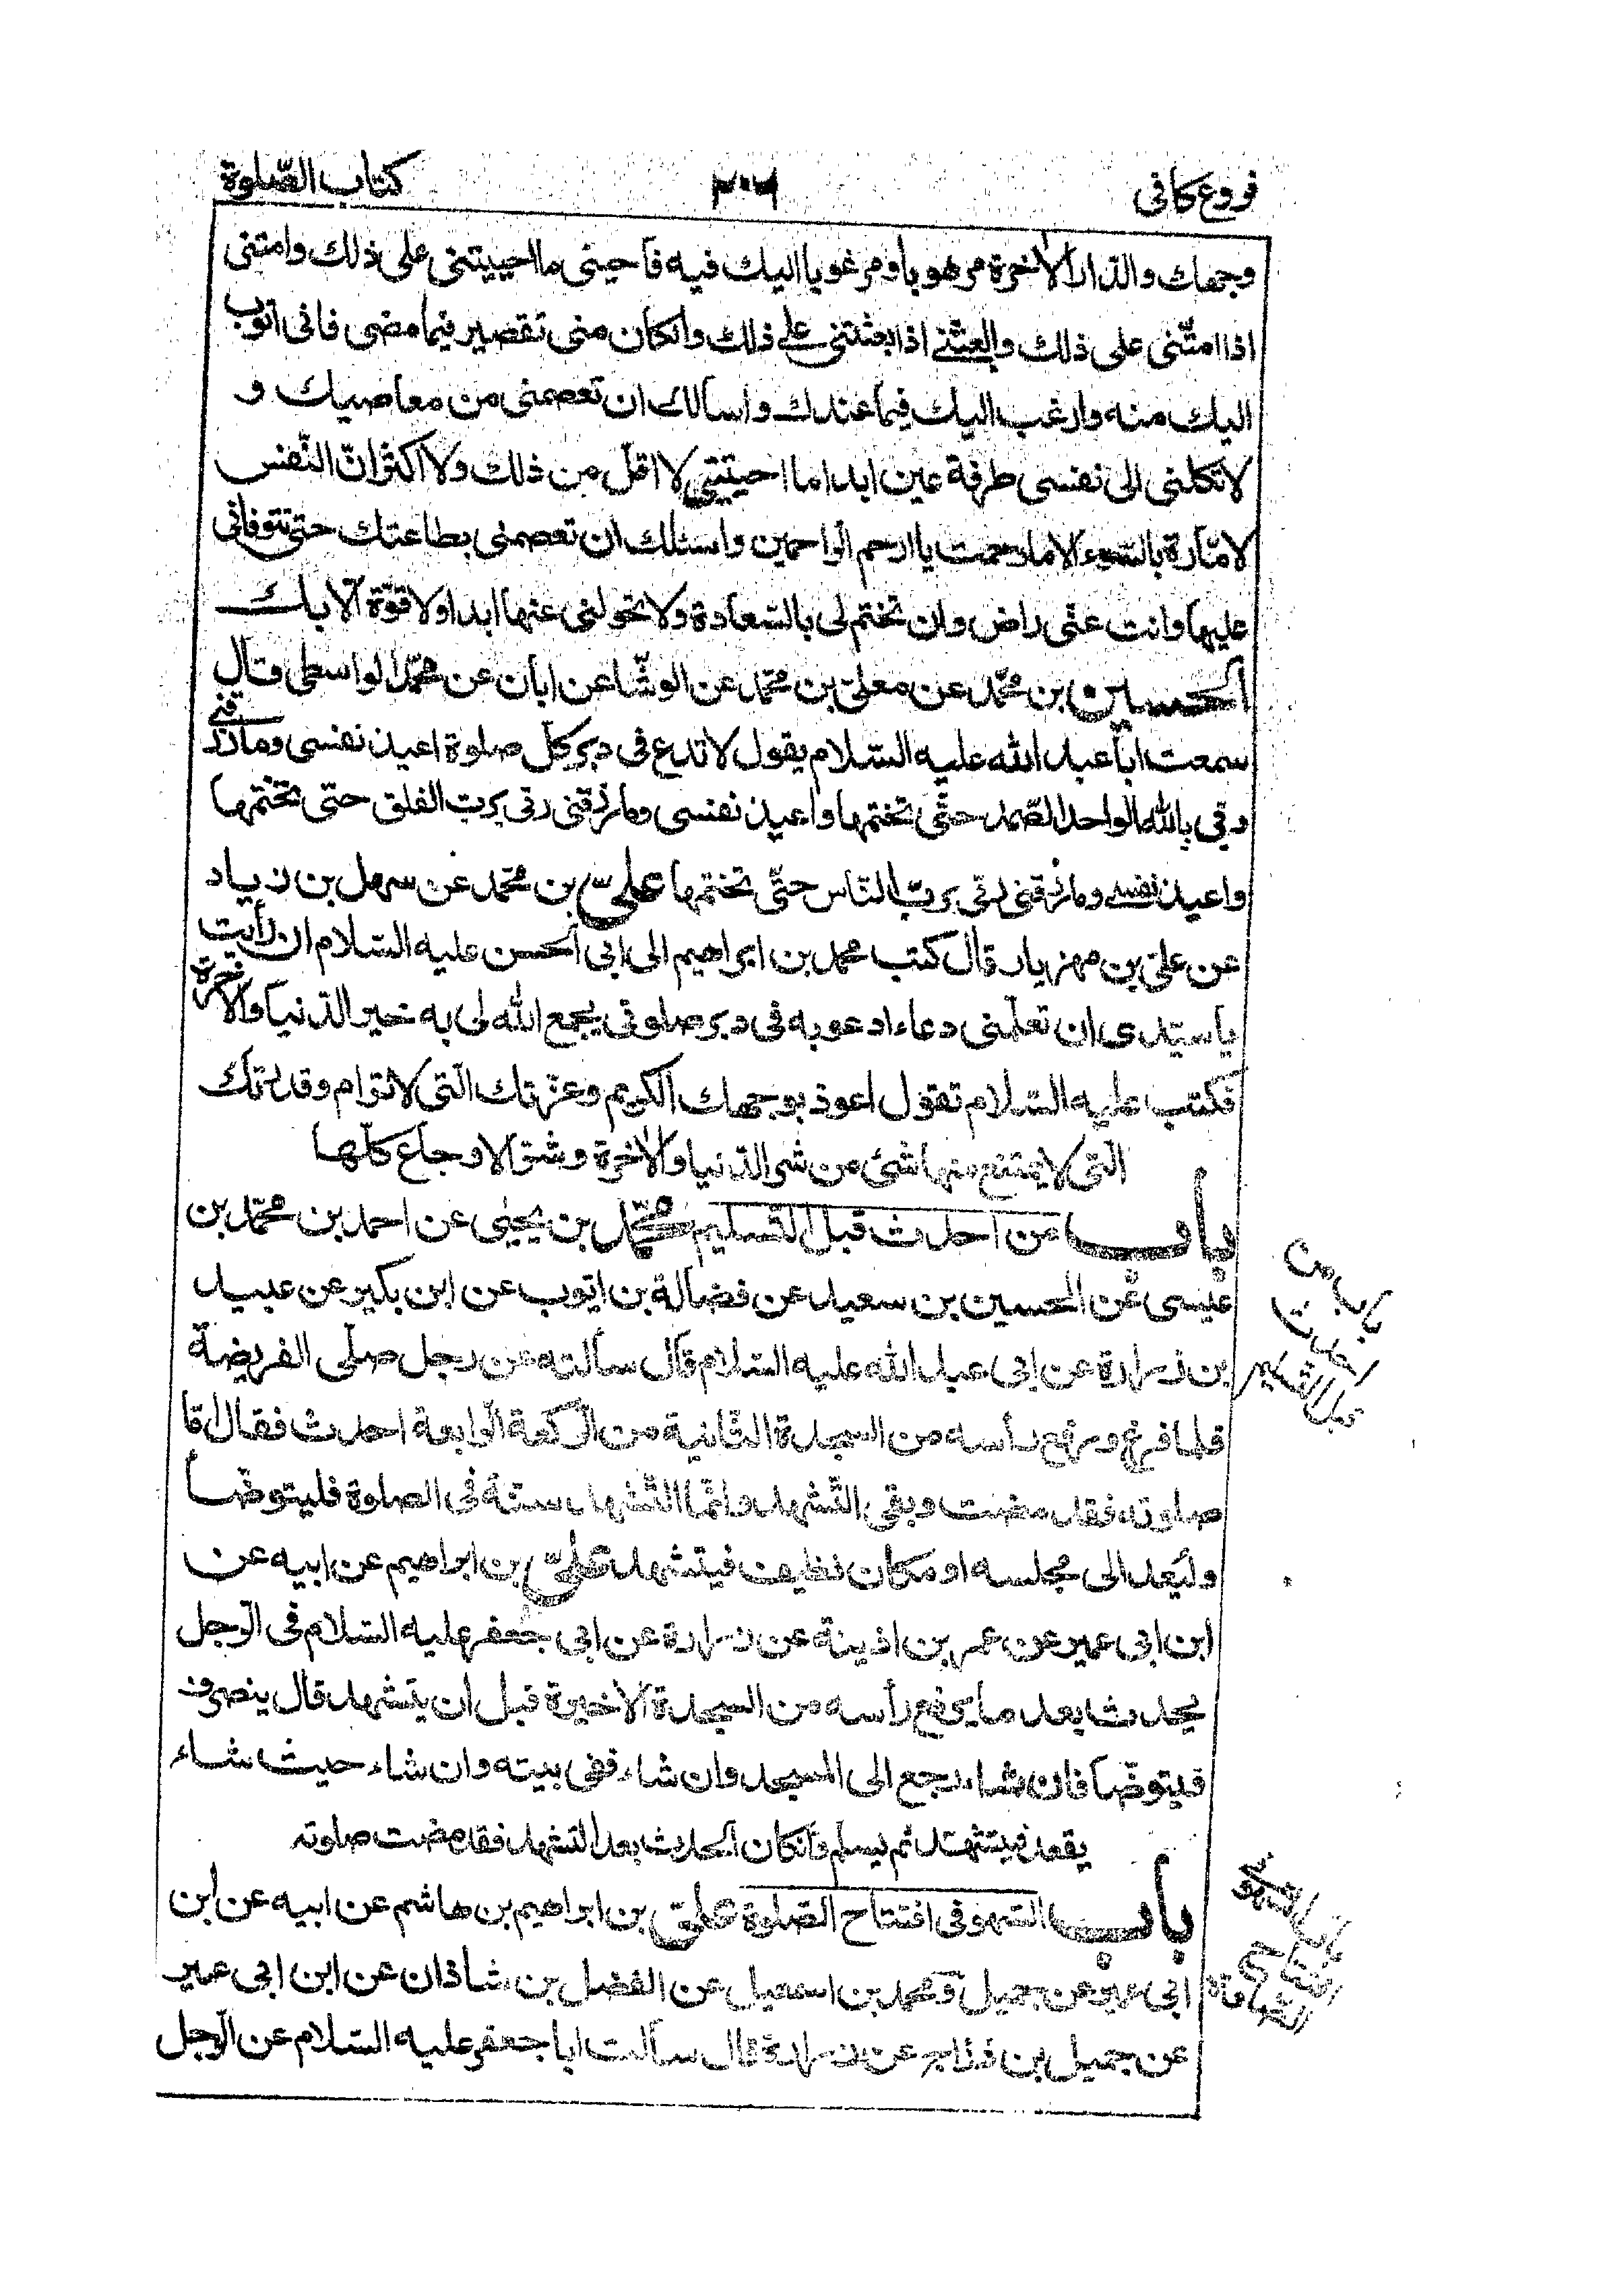 فروع کافی
کتاب الصّلوة
وجهك والدار الاٰخرة مرهوبا ومرغوبا اليك فيه فاحينى ما احييتنى على ذلك وامتنى
اذا امتّنى على ذلك وابعثنى اذا بعثتنى على ذلك وانكان منى تقصير فيما مضى فانى اتوب
اليك منه وارغب اليك فيما عندك واسألك ان تعصمنى من معاصيك و
لا تكلنى الى نفسى طرفة عين ابدا ما احييتنى لا اقل من ذلك ولا اكثر انّ النّفس
لامّارة بالسّوء الا مارحمت يا ارحم الراحمين واسئلك ان تعصمنى بطاعتك حتى تتوفانى
عليها وانت عنّى راض وان تختم لى بالسّعادة ولا تحولنى عنها ابدا ولا قوّة الّا بك
الحسين بن محمّد عن معلى بن محمّد عن الوشّا عن ابان عن محمّد الواسطى قال
سمعت ابا عبد الله عليه السّلام يقول لا تدع فى دبر كلّ صلوة اعيذ نفسى وما رزقنى
ربّى بالله الواحد الصّمد حتّى تختمها واعيذ نفسى وما رزقنى ربّى بربّ الفلق حتى تختمها
واعيذ نفسى وما رزقنى ربّى بربّ النّاس حتّى تختمها علىّ بن محمّد عن سهل بن زياد
عن علىّ بن مهزيار قال كتب محمد بن ابراهيم الى ابى الحسن عليه السّلام ان رأيت
يا سيّدى ان تعلّمنى دعاء ادعو به فى دبر صلوتى يجمع الله لى به خير الدّنيا والاٰخرة
فكتب عليه السّلام تقول اعوذ بوجهك الكريم وعزّتك الّتى لا ترام وقدرتك
الّتى لا يمتنع منها شئ من شرّ الدّنيا والاٰخرة وشرّ الاوجاع كلّها
باب من احدث قبل التّسليم محمّد بن يحيى عن احمد بن محمّد بن
عيسى عن الحسين بن سعيد عن فضالة بن ايّوب عن ابن بكير عن عبيد
بن زرارة عن ابى عبد الله عليه السّلام قال سألته عن رجل صلّى الفريضة
فلما فرغ ورفع رأسه من السجدة الثّانية من الرّكعة الرّابعة احدث فقال امّا
صلوته فقد مضت وبقى التّشهد وانّما التّشهد سنّة فى الصلوة فليتوضّأ
وليعد الى مجلسه او مكان نظيف فيتشهد علىّ بن ابراهيم عن ابيه عن
ابن ابى عمير عن عمر بن اذينة عن زرارة عن ابى جعفر عليه السّلام فى الرّجل
يحدث بعد ما يرفع رأسه من السجدة الاخيرة قبل ان يتشهد قال ينصرف
فيتوضّأ فان شاء رجع الى المسجد وان شاء ففى بيته وان شاء حيث شاء
يقعد فيتشهّد ثم يسلم وانكان الحدث بعد التشهد فقد مضت صلوته
باب السّهو فى افتتاح الصّلوة علىّ بن ابراهيم بن هاشم عن ابيه عن ابن
ابى عمير عن جميل ومحمد بن اسمعيل عن الفضل بن شاذان عن ابن ابى عمير
عن جميل بن درّاج عن زرارة قال سألت ابا جعفر عليه السّلام عن الرّجل
باب من
احدث
قبل التسليم
باب السهو
فى افتتاح
الصّلوة